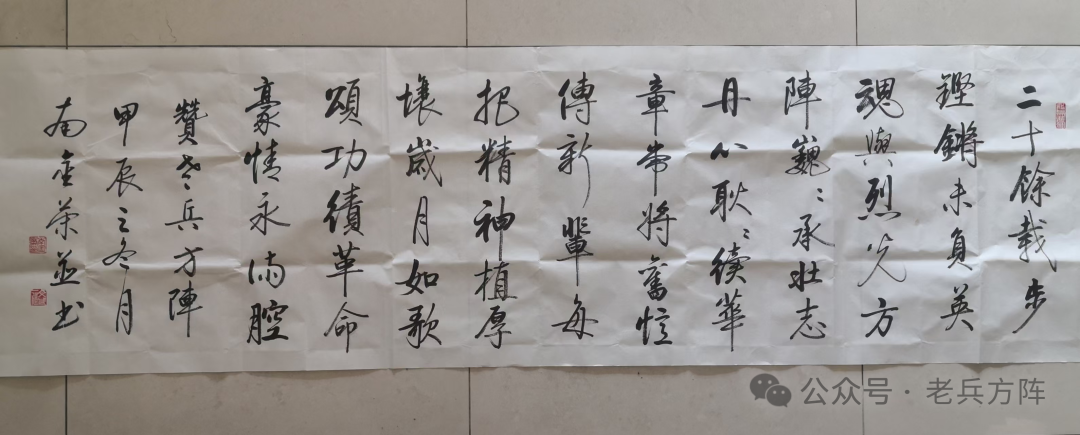 二十餘載步
鏗鏘未負英
魂與烈光方
陣巍々承壯志
丹心耿々續華
章常將舊憶
傳新輩每
把精神植厚
壤歲月如歌
頌功績革命
豪情永滿腔
贊老兵方陣
甲辰之冬月
榮並书
公众号·老兵方阵